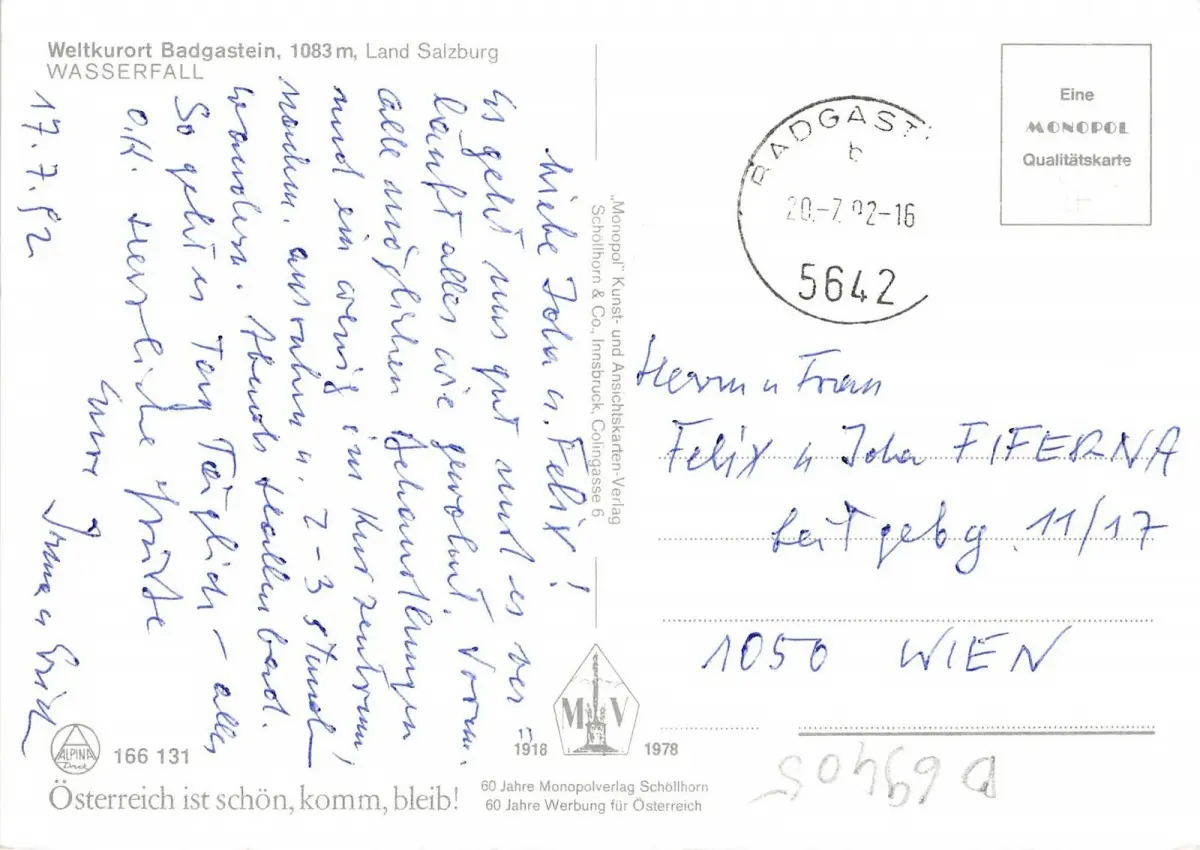 Weltkurort Badgastein, 1083 m, Land Salzburg
WASSERFALL
17.7.92
Liebe Joha u. Felix!
Es geht uns gut und es ver-
läuft alles wie gewohnt. Vorm.
alle möglichen Behandlungen
und ein wenig im Kurzentrum,
nachm. ausruhn u. 2-3 Stund
wandern. Abends Hallenbad.
So geht es Tag Täglich – alles
o.K. Herzliche Grüße
Eure Irma u Erich
"Monopol" Kunst- und Ansichtskarten-Verlag
Schöllhorn & Co., Innsbruck, Colingasse 6
Eine
MONOPOL
Qualitätskarte
BADGAST
b
20.-7.92-16
5642
Herrn u Frau
Felix u Joha FIFERNA
Leitgebg. 11/17
1050 WIEN
M V
1918 1978
60 Jahre Monopolverlag Schöllhorn
60 Jahre Werbung für Österreich
ALPINA
Druck
166 131
Österreich ist schön, komm, bleib!
D 69405